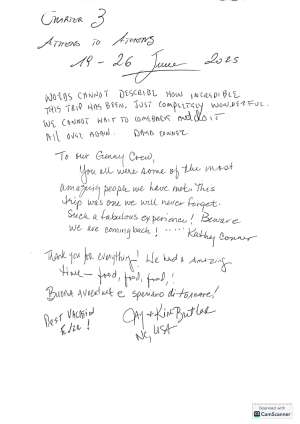 CHARTER 3
ATHENS TO ATHENS
19 - 26 June 2025
WORDS CANNOT DESCRIBE HOW INCREDIBLE
THIS TRIP HAS BEEN. JUST COMPLETELY WONDERFUL.
WE CANNOT WAIT TO COME BACK and do it
All OVER AGAIN. DAVID CONNER
To our Genny Crew,
You all were some of the most
amazing people we have met. This
trip was one we will never forget.
Such a fabulous experience! Beware
we are coming back! ..... Kathy Conner
Thank you for everything! We had a amazing
time - food, food, food,!
BUONA e speriamo di tornare!
BEST VACATION
EVER!
JAY + Kim Butler
NC, USA
Scanned with
CamScanner